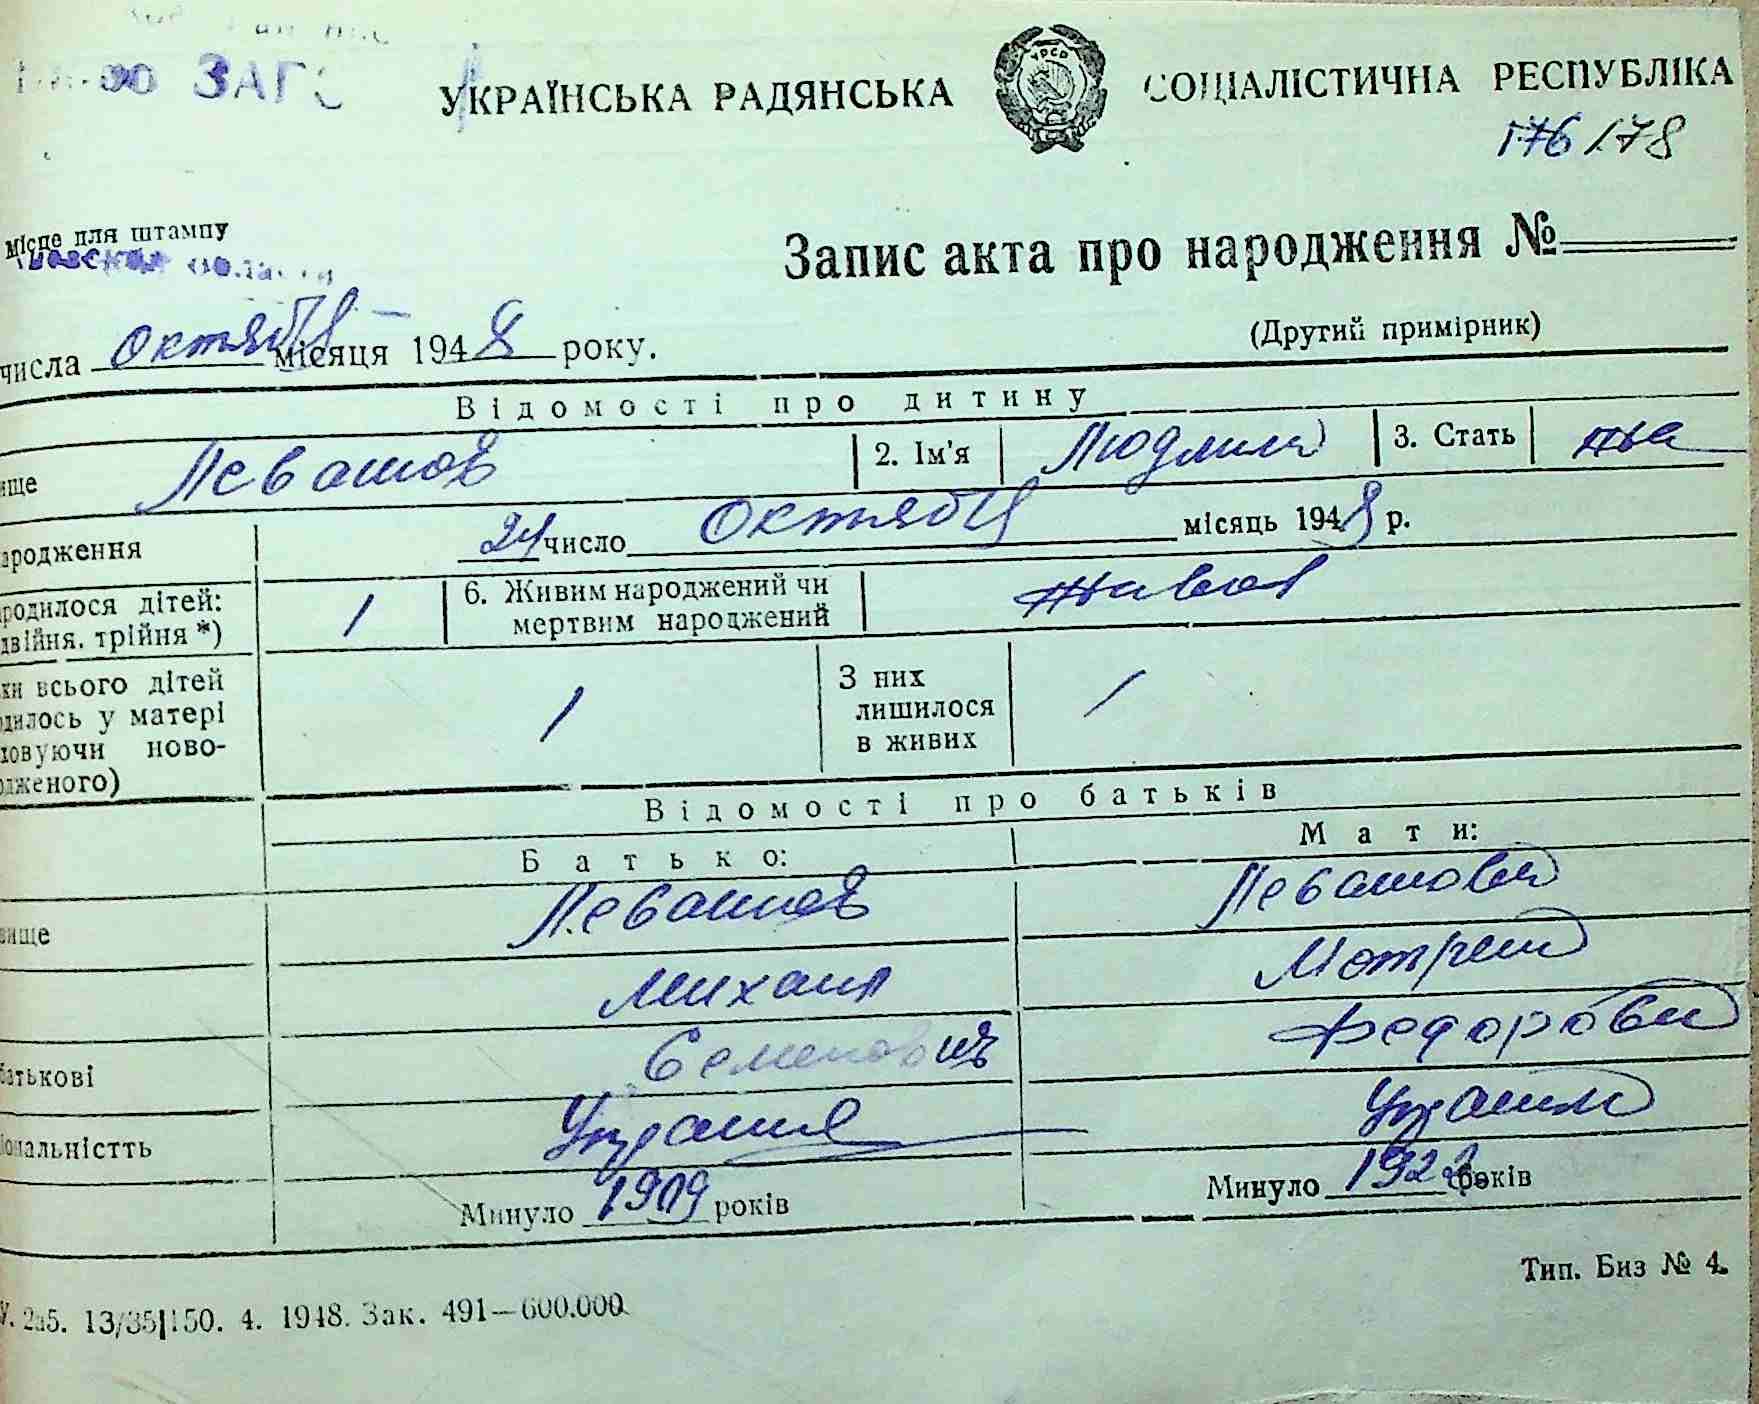 ЗАГС
УКРАЇНСЬКА РАДЯНСЬКА СОЦІАЛІСТИЧНА РЕСПУБЛІКА
УРСР
176 178
місце для штампу
Запис акта про народження №
(Другий примірник)
числа октября місяця 1948 року.
Відомості про дитину
ище Левашов 2. Ім'я Людмила 3. Стать жа
ародження 24 число Октября місяць 1948 р.
родилося дітей: 1 6. Живим народжений чи живой
двійня, трійня *) мертвим народжений
ки всього дітей 1 З них 1
дилось у матері лишилося
ховуючи ново- в живих
дженого)
Відомості про батьків
Батько: Мати:
вище Левашов Левашова
Михаил Мотрия
батькові Семенович Федоровн
іональністть
Минуло 1909 років Минуло 1922 років
У. 2а5. 13/35|150. 4. 1948. Зак. 491—600.000.
Тип. Биз № 4.